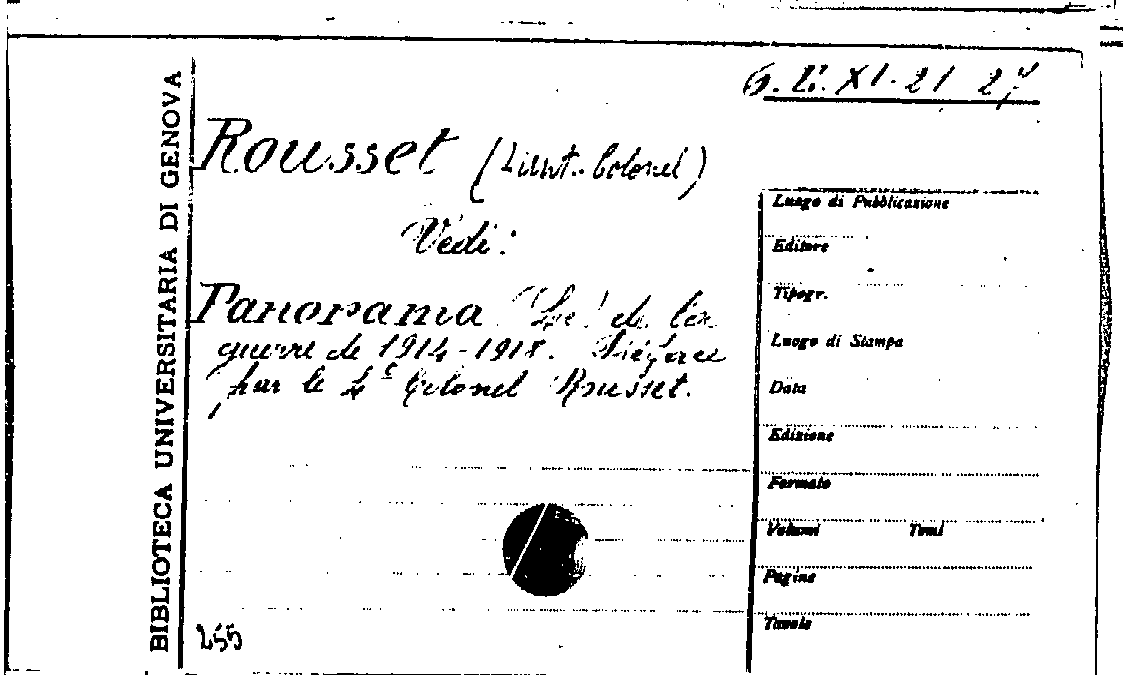 BIBLIOTECA UNIVERSITARIA DI GENOVA
XI. 21 27
Rousset (Lieut. Colonel)
Vedi:
Panorama (Le) de la
guerre de 1914-1918. Préface
par le Lt Colonel Rousset.
255
Luogo di Pubblicazione
Editore
Tipogr.
Luogo di Stampa
Data
Edizione
Formato
Volumi Tomi
Pagine
Tavole